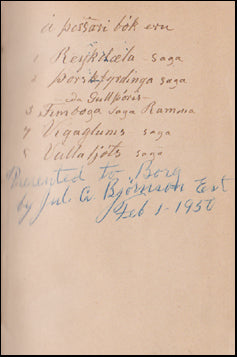 á þessari bók eru
1 Reykdæla saga
2 Þorskfyrdinga saga
-da Gullþoris-
3 Finnboga saga Ramma
4 Vigaglums saga
5 Vallaljóts saga
Presented to Borg
by Jul. A Björnson Est
Feb 1 - 1950